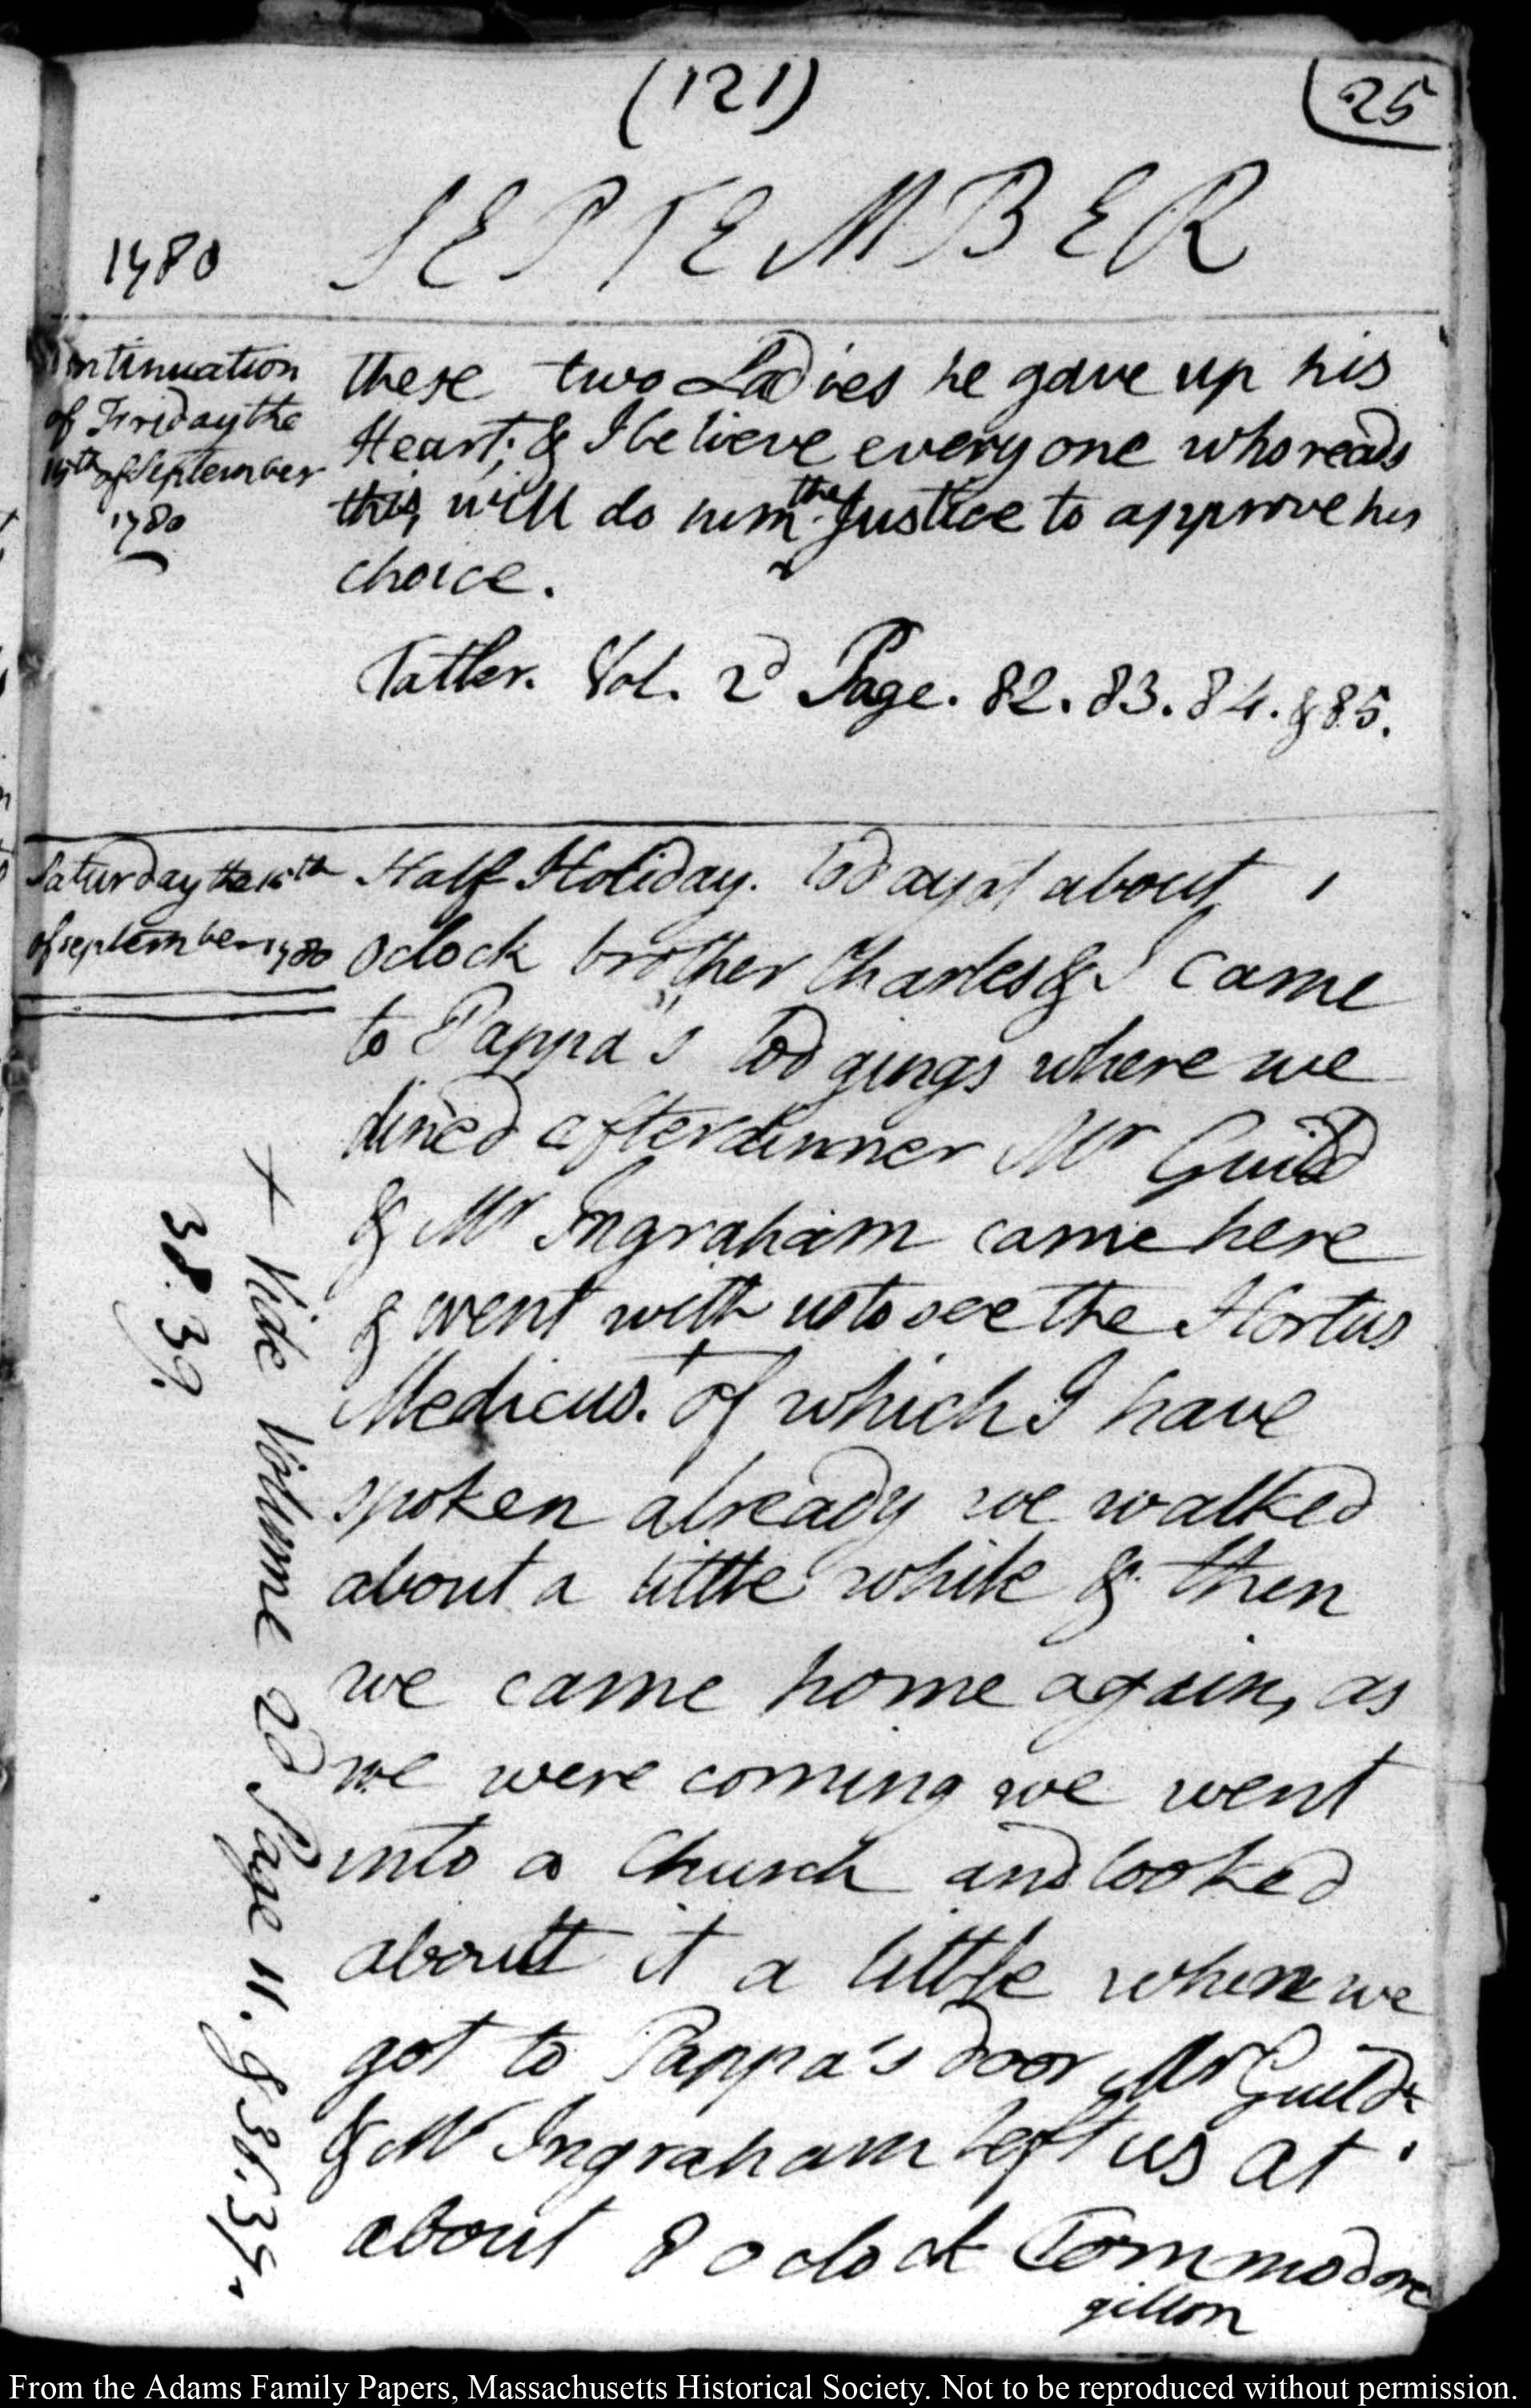 (121)
25
1780
SEPTEMBER
Continuation
of Friday the
of September
1780
these two Ladies he gave up his
Heart; & I believe every one who reads
this, will do him the Justice to approve his
choice.
Tatler. Vol. 2d Page. 82. 83. 84. & 85.
Saturday the 16th
of september 1780
Half Holiday. Today at about 1
Oclock brother Charles & I came
to Pappa's lodgings where we
dined after dinner Mr Guild
& Mr Ingraham came here
& went with us to see the Hortus
Medicus. + of which I have
spoken already we walked
about a little while & then
we came home again, as
we were coming we went
into a Church and looked
about it a little when we
got to Pappa's door Mr Guild
& Mr Ingraham left us at
about 8 o clock Commodore
gillon
+ Vide Volume 2d Page 11. & 36. 37.
38. 39.
From the Adams Family Papers, Massachusetts Historical Society. Not to be reproduced without permission.